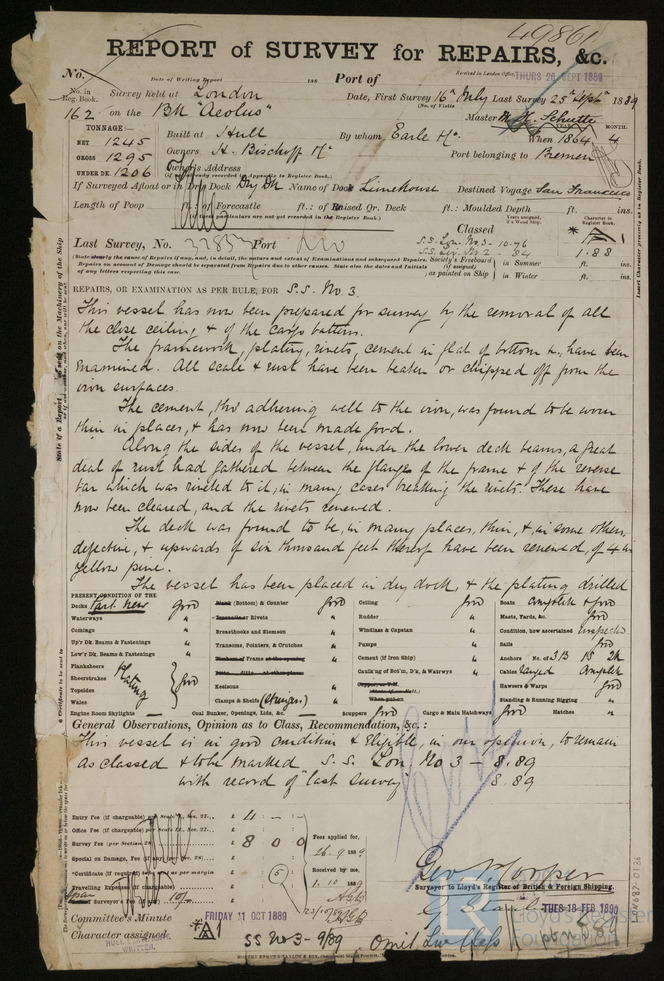 49861
REPORT of SURVEY for REPAIRS, &c.
No. Date of Writing Report 188 Port of Received in London Office THURS 26 SEPT 1889
No. in Reg. Book. Survey held at London Date, First Survey 16th July Last Survey 25th Sept 1889
(No. of Visits
162 on the Bk "Aeolus" Master
TONNAGE:— YEAR. MONTH.
NET 1245 Built at Hull By whom Earle & Co. When 1864 4
GROSS 1295 Owners H. Bischoff & Co Port belonging to Bremen
UNDER DK. 1206 Owner's Address
(if not already recorded in Appendix to Register Book.)
If Surveyed Afloat or in Dry Dock Dry Dk Name of Dock Limehouse Destined Voyage San Francisco
Length of Poop ft. : of Forecastle ft. : of Raised Qr. Deck ft. : Moulded Depth ft. ins.
(if these particulars are not yet recorded in the Register Book.)
Classed
Character in Register Book.
Last Survey, No. Port
S.S. Lon. No. 3 - 10.76
1.88
Society's Freeboard (if assigned) as painted on Ship in Summer ft. in.
in Winter ft. in.
REPAIRS, OR EXAMINATION AS PER RULE, FOR S.S. No. 3.
This vessel has now been prepared for survey by the removal of all
the close ceiling & of the cargo battens.
The framework, plating, rivets, cement in flat of bottom &c, have been
examined. All scale & rust have been beaten or chipped off from the
iron surfaces.
The cement, tho' adhering well to the iron, was found to be worn
thin in places, & has now been made good.
Along the sides of the vessel, under the lower deck beams, a great
deal of rust had gathered between the flange of the frame & of the reverse
bar which was riveted to it, in many cases breaking the rivets. These have
now been cleared, and the rivets renewed.
The deck was found to be, in many places, thin, & in some others,
defective, & upwards of six thousand feet thereof have been renewed, of 4 in
yellow pine.
The vessel has been placed in dry dock, & the plating drilled
PRESENT CONDITION OF THE
Decks Part new good
Waterways "
Comings "
Up'r Dk. Beams & Fastenings "
Low'r Dk. Beams & Fastenings "
Planksheers
Sheerstrakes
Topsides
Wales
Plating good
Engine Room Skylights
(Bottom) & Counter good
or Rivets "
Breasthooks and Stemson "
Transoms, Pointers, & Crutches "
Frame "
Keelsons "
Clamps & Shelfs (Stringers) "
Coal Bunker, Openings, Lids, &c.
Ceiling good
Rudder "
Windlass & Capstan "
Pumps "
Cement (if Iron Ship) "
Caulk'ng of Bot'm, D'k, & Wat'rwys "
Scuppers good Cargo & Main Hatchways good Hatches "
Boats complete & good
Masts, Yards, &c. good
Condition, how ascertained inspected
Sails good
Anchors No. of 3B 1S 2K
Cables ranged complete
Hawsers & Warps good
Standing & Running Rigging "
General Observations, Opinion as to Class, Recommendation, &c. :
This vessel is in good condition & eligible, in our opinion, to remain
as classed & to be marked S.S. Lon. No 3 - 8.89
with record of "last survey" 8.89
Entry Fee (if chargeable) per Scale £
Office Fee (if chargeable) per £
Survey Fee (per Section £ 8 0 0
Special on Damage, Fee (if any) £
Certificate (if required) £ 5
Travelling Expenses (if chargeable) £
Surveyor's Fee 10/-
Fees applied for, 26.9.1889
Received by me, 1.10.1889
Surveyor to Lloyd's Register of British & Foreign Shipping.
Committee's Minute FRIDAY 11 OCT 1889 TUES 18 FEB 1890
Character assigned *A1
SS No 3-9/89
Lloyd's Register
Foundation
LON687-0136